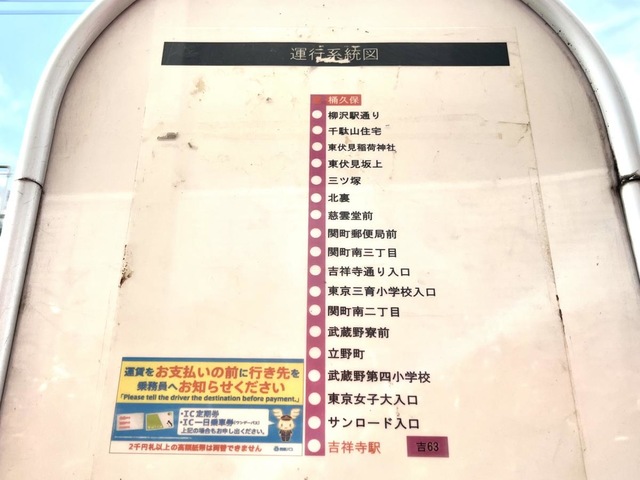 運行系統図
桶久保
柳沢駅通り
千駄山住宅
東伏見稲荷神社
東伏見坂上
三ツ塚
北裏
慈雲堂前
関町郵便局前
関町南三丁目
吉祥寺通り入口
東京三育小学校入口
関町南二丁目
武蔵野寮前
立野町
武蔵野第四小学校
東京女子大入口
サンロード入口
吉祥寺駅 吉63
運賃をお支払いの前に行き先を
乗務員へお知らせください
「Please tell the driver the destination before payment.」
・IC定期券
・IC一日乗車券(ワンデーパス)
上記の場合もお申し出ください。
2千円札以上の高額紙幣は両替できません